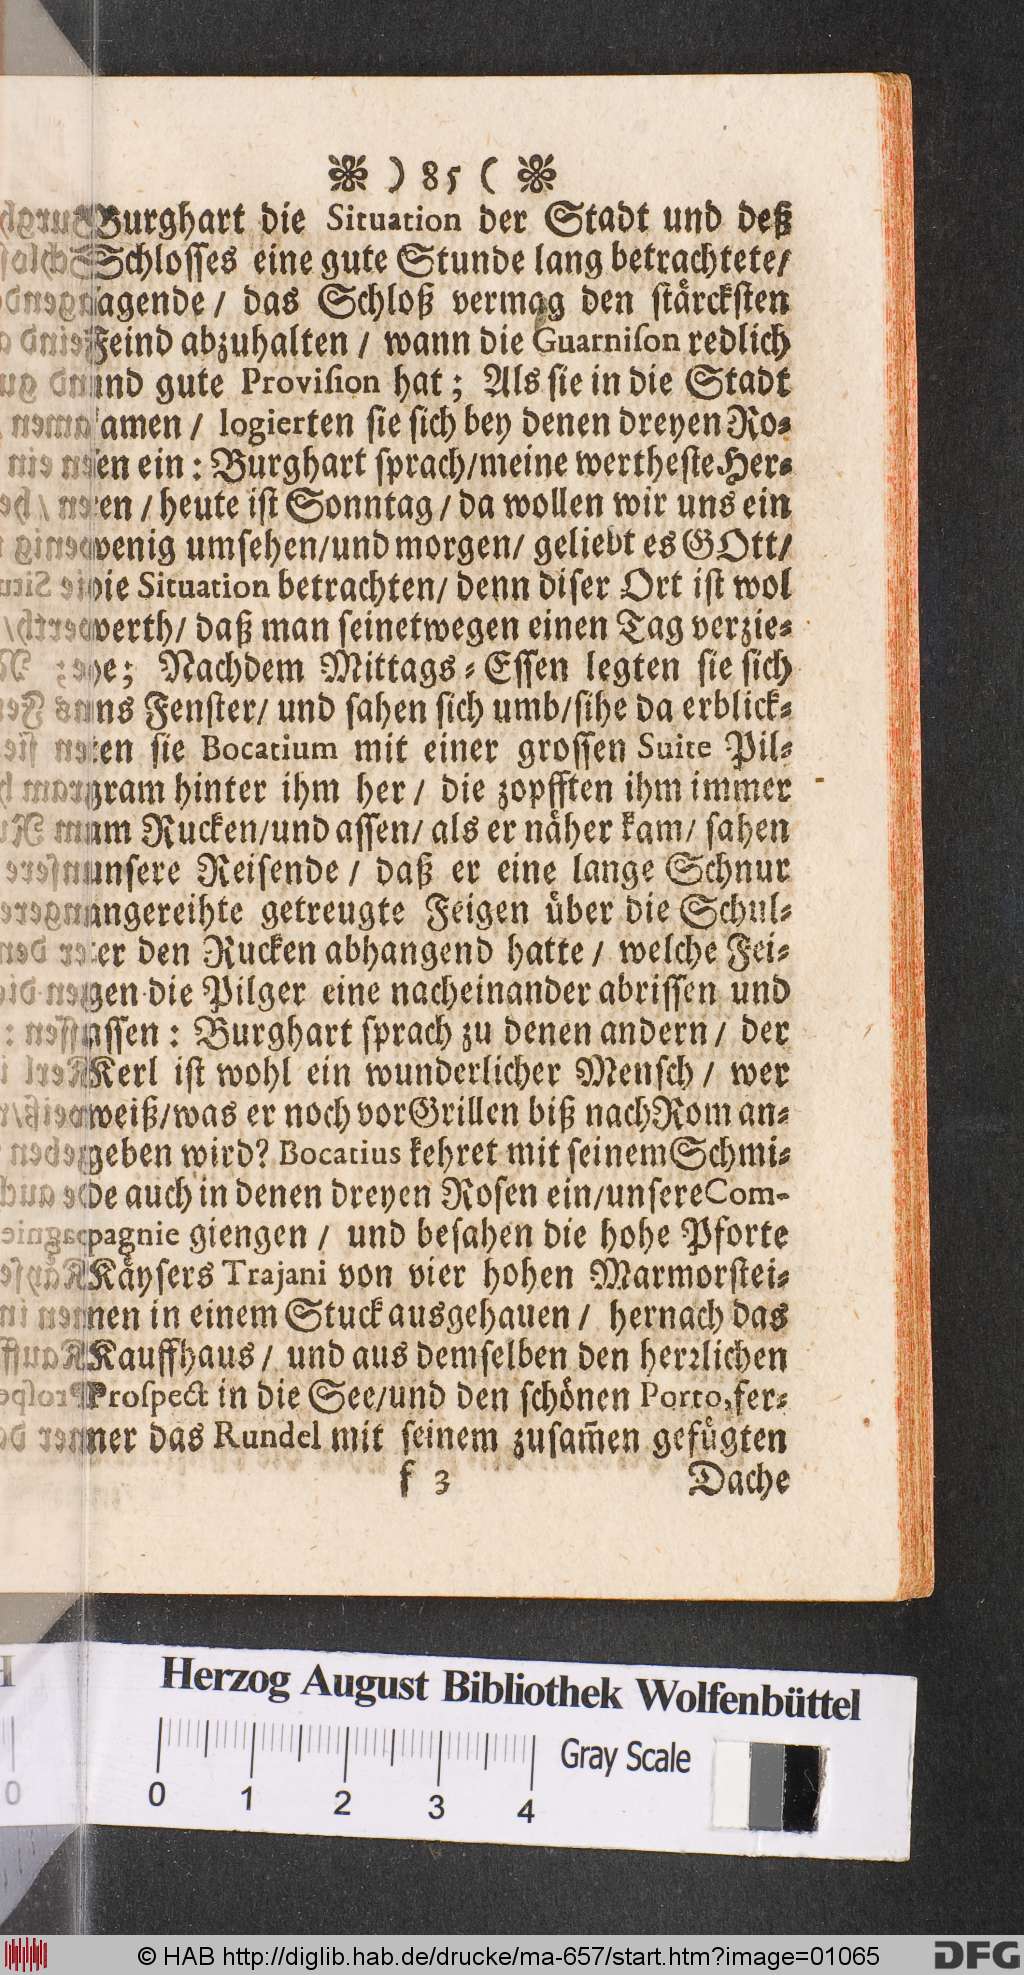 ) 85 (
Burghart die Situation der Stadt und deß
Schlosses eine gute Stunde lang betrachtete/
sagende / das Schloß vermag den stärcksten
Feind abzuhalten / wann die Guarnison redlich
und gute Provision hat ; Als sie in die Stadt
kamen / logierten sie sich bey denen dreyen Ro-
sen ein : Burghart sprach/meine wertheste Her-
ren / heute ist Sonntag / da wollen wir uns ein
wenig umsehen/und morgen/ geliebt es GOtt/
die Situation betrachten/ denn diser Ort ist wol
werth/ daß man seinetwegen einen Tag verzie-
he; Nachdem Mittags-Essen legten sie sich
ins Fenster/ und sahen sich umb/sihe da erblick-
ten sie Bocatium mit einer grossen Suite Pil-
gram hinter ihm her / die zopfften ihm immer
am Rucken/und assen/ als er näher kam/ sahen
unsere Reisende / daß er eine lange Schnur
angereihte getreugte Feigen über die Schul-
ter den Rucken abhangend hatte / welche Fei-
gen die Pilger eine nacheinander abrissen und
assen : Burghart sprach zu denen andern / der
Kerl ist wohl ein wunderlicher Mensch / wer
weiß/was er noch vor Grillen biß nach Rom an-
geben wird? Bocatius kehret mit seinem Schmi-
de auch in denen dreyen Rosen ein/unsere Com-
pagnie giengen / und besahen die hohe Pforte
Käysers Trajani von vier hohen Marmorstei-
nen in einem Stuck ausgehauen / hernach das
Kauffhaus / und aus demselben den herrlichen
Prospect in die See/und den schönen Porto, fer-
ner das Rundel mit seinem zusam̄en gefügten
f 3 Dache
Herzog August Bibliothek Wolfenbüttel
Gray Scale
0 1 2 3 4
© HAB http://diglib.hab.de/drucke/ma-657/start.htm?image=01065
DFG